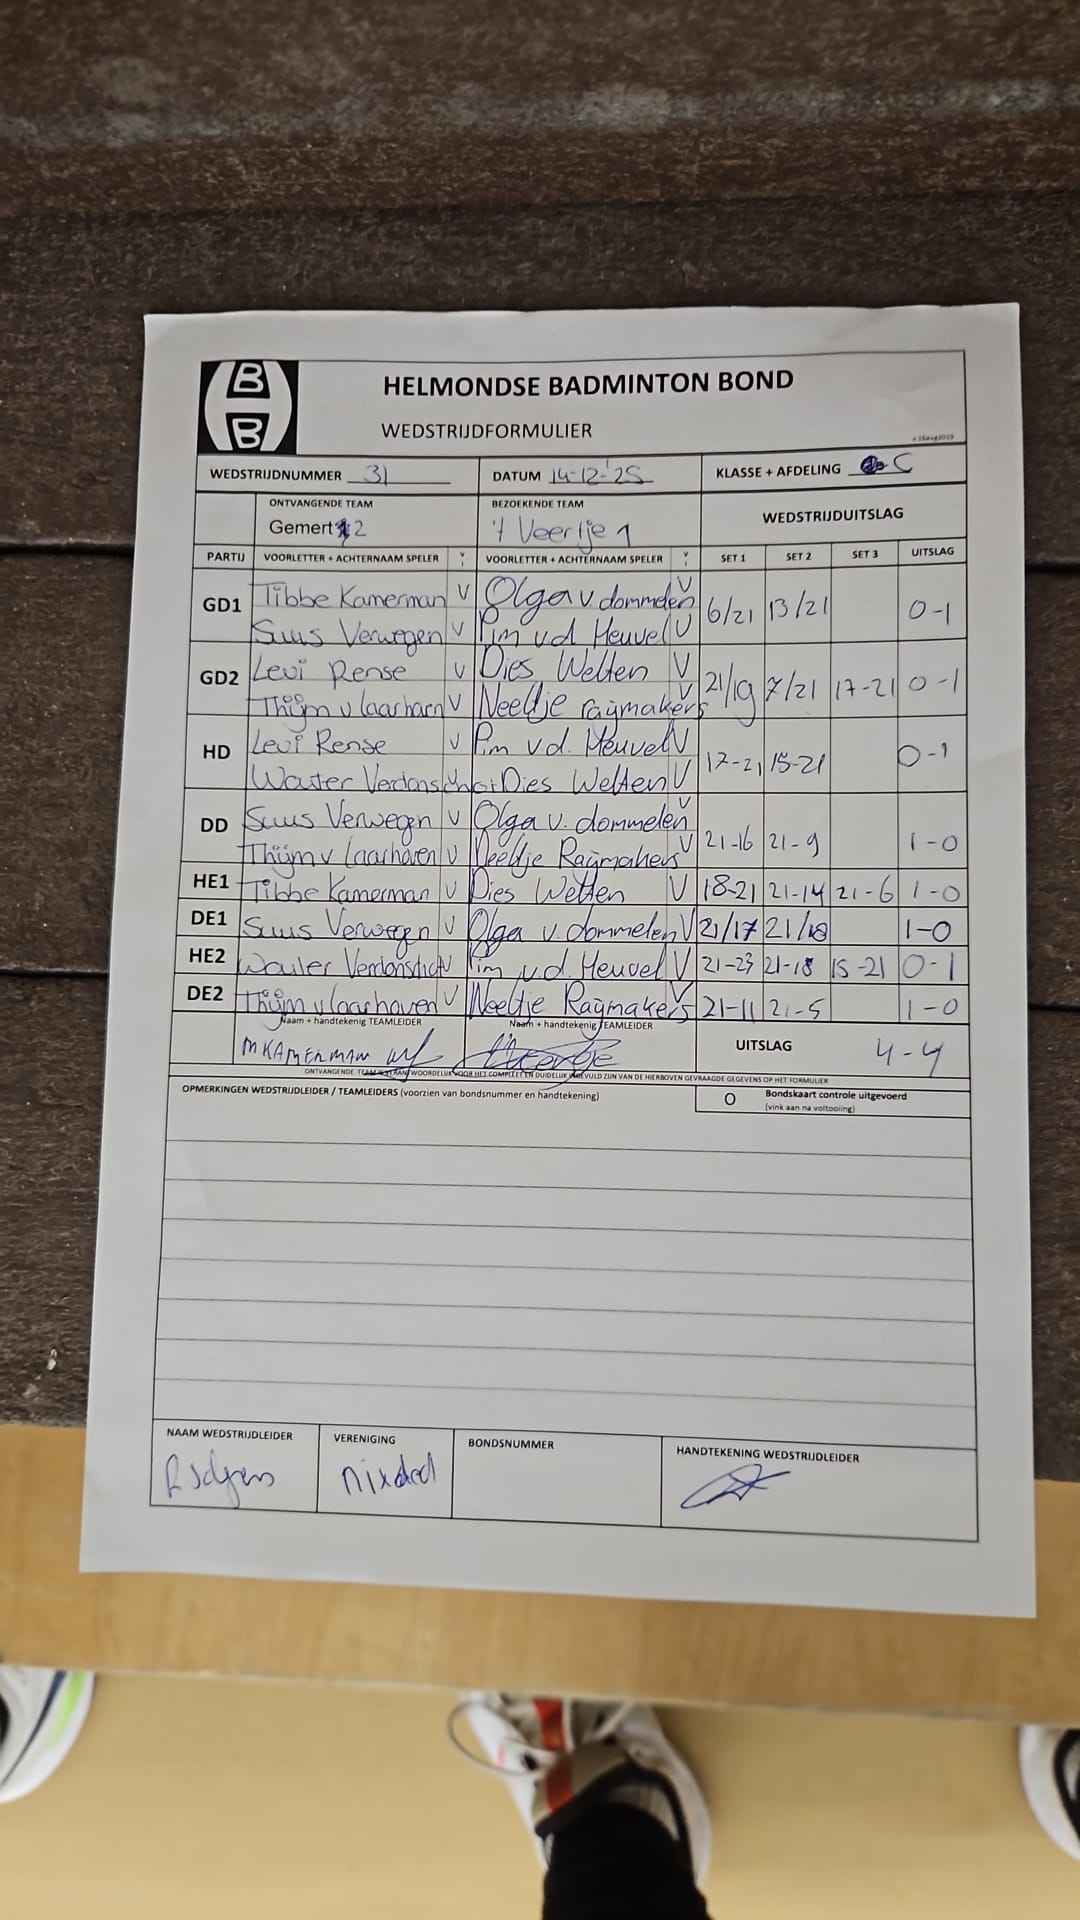 B
B
HELMONDSE BADMINTON BOND
WEDSTRIJDFORMULIER
WEDSTRIJDNUMMER 31 DATUM 14-12-'25 KLASSE + AFDELING C
ONTVANGENDE TEAM BEZOEKENDE TEAM WEDSTRIJDUITSLAG
Gemert 2 't Veertje 1
PARTIJ VOORLETTER + ACHTERNAAM SPELER V VOORLETTER + ACHTERNAAM SPELER V SET 1 SET 2 SET 3 UITSLAG
GD1 Tibbe Kamerman V Olga v dommelen V 6/21 13/21 0-1
Suus Verwegen V Pim v.d. Heuvel V
GD2 Levi Rense V Dies Welten V 21/19 7/21 17-21 0-1
Thijm v laarhavn V Neeltje raijmakers V
HD Levi Rense V Pim v.d. Heuvel V 17-21 15-21 0-1
Wouter Verdonschot Dies Welten V
DD Suus Verwegen V Olga v. dommelen V 21-16 21-9 1-0
Thijm v laarhoven V Neeltje Raijmakers V
HE1 Tibbe Kamerman V Dies Welten V 18-21 21-14 21-6 1-0
DE1 Suus Verwegen V Olga v. dommelen V 21/17 21/18 1-0
HE2 Wouter V Pim v.d. Heuvel V 21-23 21-18 15-21 0-1
DE2 Thijm v laarhoven V Neeltje Raijmakers V 21-11 21-5 1-0
Naam + handtekenig TEAMLEIDER Naam + handtekenig TEAMLEIDER
M KAMERMAN UITSLAG 4-4
ONTVANGENDE TEAM IS VERANTWOORDELIJK VOOR HET COMPLEET EN DUIDELIJK INGEVULD ZIJN VAN DE HIERBOVEN GEVRAAGDE GEGEVENS OP HET FORMULIER
OPMERKINGEN WEDSTRIJDLEIDER / TEAMLEIDERS (voorzien van bondsnummer en handtekening) O Bondskaart controle uitgevoerd
(vink aan na voltooiing)
NAAM WEDSTRIJDLEIDER VERENIGING BONDSNUMMER HANDTEKENING WEDSTRIJDLEIDER